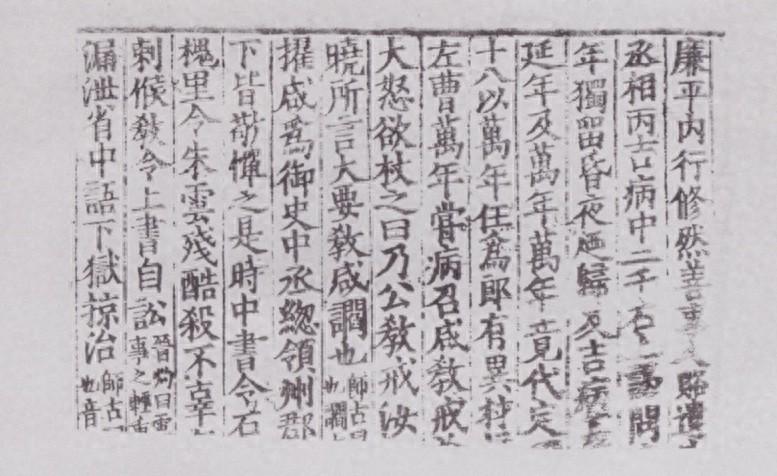 廉平內行修然善事人賂遺
丞相丙吉病中二千石上謁問
年獨畱昏夜廼歸及吉病甚
延年及萬年萬年竟代定
十八以萬年任爲郎有異材
左曹萬年嘗病召咸教戒
大怒欲杖之曰乃公教戒汝
曉所言大要教咸讇也師古曰也讇
擢咸爲御史中丞緫領州郡
下皆敬憚之是時中書令石
槐里令朱雲殘酷殺不辜
刺候教令上書自訟晉灼曰雲事之輕重
漏泄省中語下獄掠治師古也音